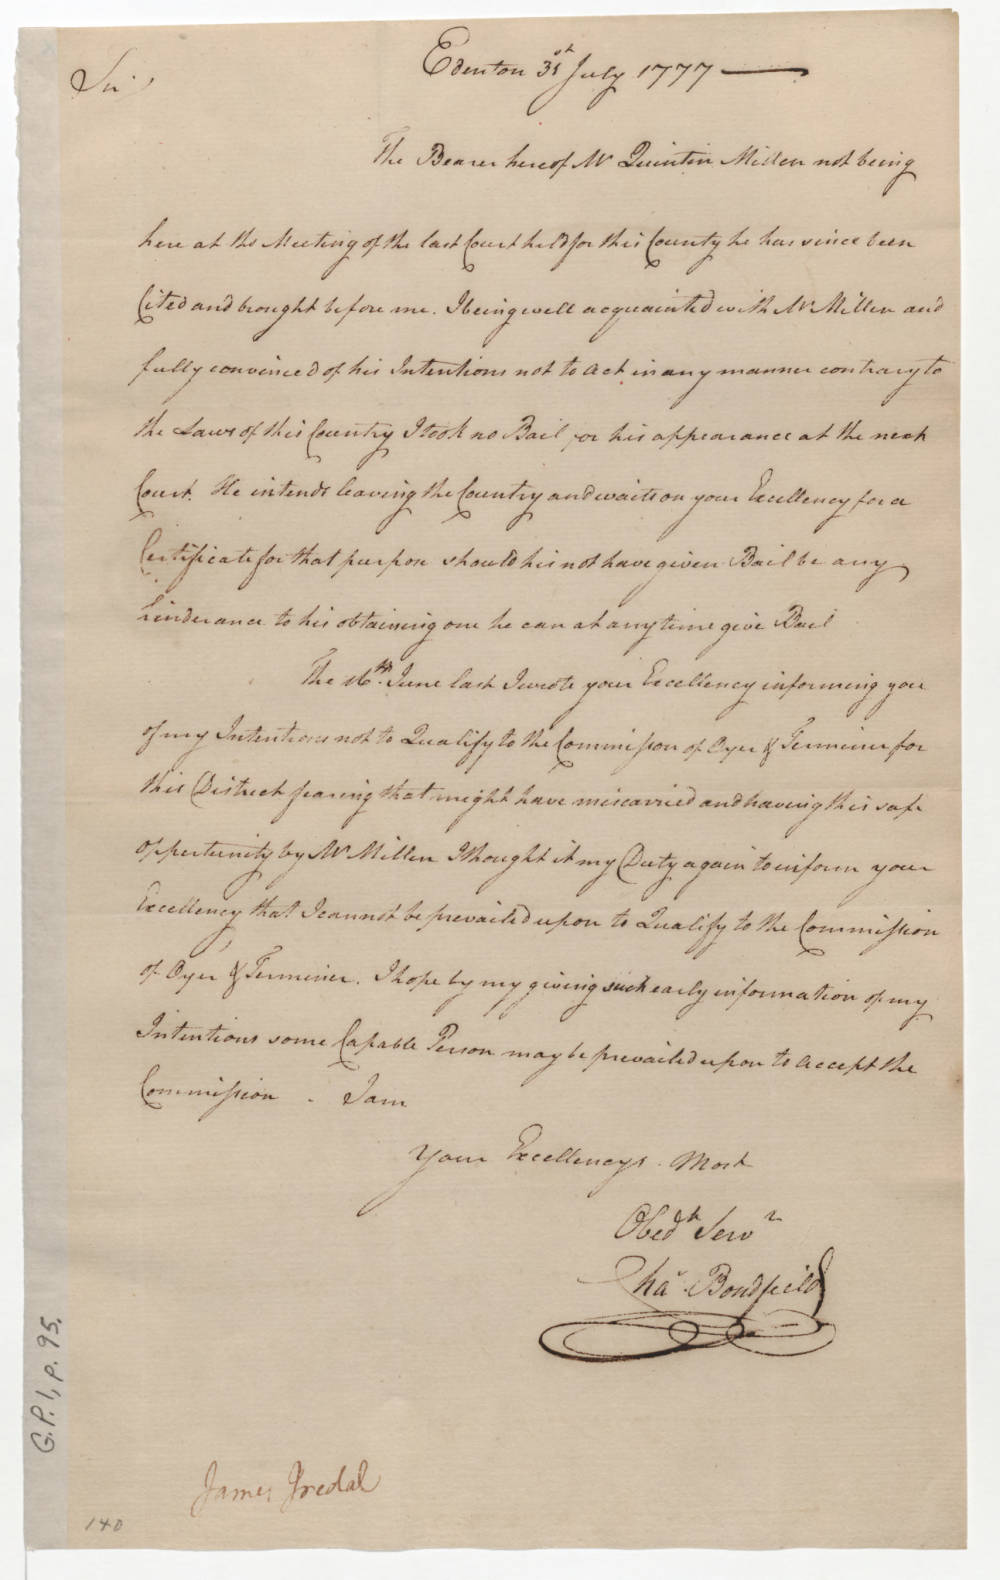 Edenton 31st July 1777
Sir
The Bearer hereof Mr Quintin Millen not being
here at the Meeting of the last Court held for this County he has since been
Cited and brought before me. I being well acquainted with Mr Millen and
fully convinced of his Intentions not to act in any manner contrary to
the Laws of this Country I took no Bail for his appearance at the next
Court. He intends leaving the Country and waits on your Excellency for a
Certificate for that purpose should his not have given Bail be any
hinderance to his obtaining one he can at any time give Bail
The 16th June last I wrote your Excellency informing you
of my Intentions not to Qualify to the Commission of Oyer & Terminer for
this District fearing that might have miscarried and having this safe
oppertunity by Mr Millen I thought it my Duty again to inform your
Excellency that I cannot be prevailed upon to Qualify to the Commission
of Oyer & Terminer. I hope by my giving such early information of my
Intentions some Capable Person may be prevailed upon to accept the
Commission. I am
Your Excellencys Most
Obedt Servt
Chas Bondfield
James Iredal
140
G.P. 1, p. 95.